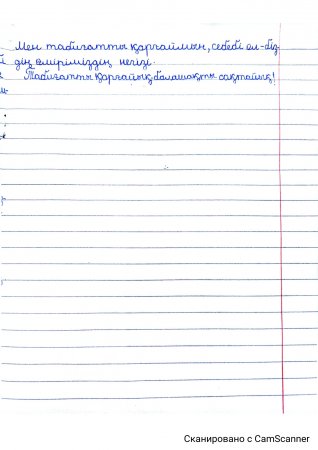 Мен табиғатты қорғаймын, себебі ол-біз-
дің өміріміздің негізі.
Табиғатты қорғайық, болашақты сақтайық!
Сканировано с CamScanner